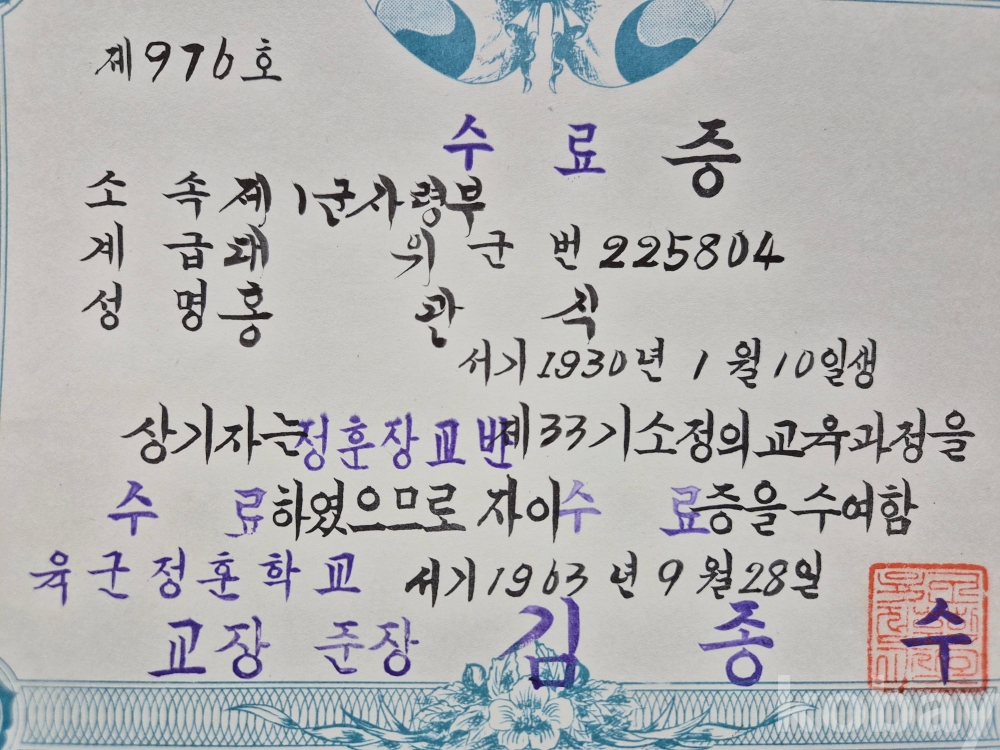 제976호
수료증
소속 제1군사령부
계급 대위 군번 225804
성명 홍관식
서기 1930년 1월 10일생
상기자는 정훈장교반 제33기 소정의 교육과정을
수료하였으므로 자이 수료증을 수여함
육군정훈학교 서기 1963년 9월 28일
교장 준장 김종수